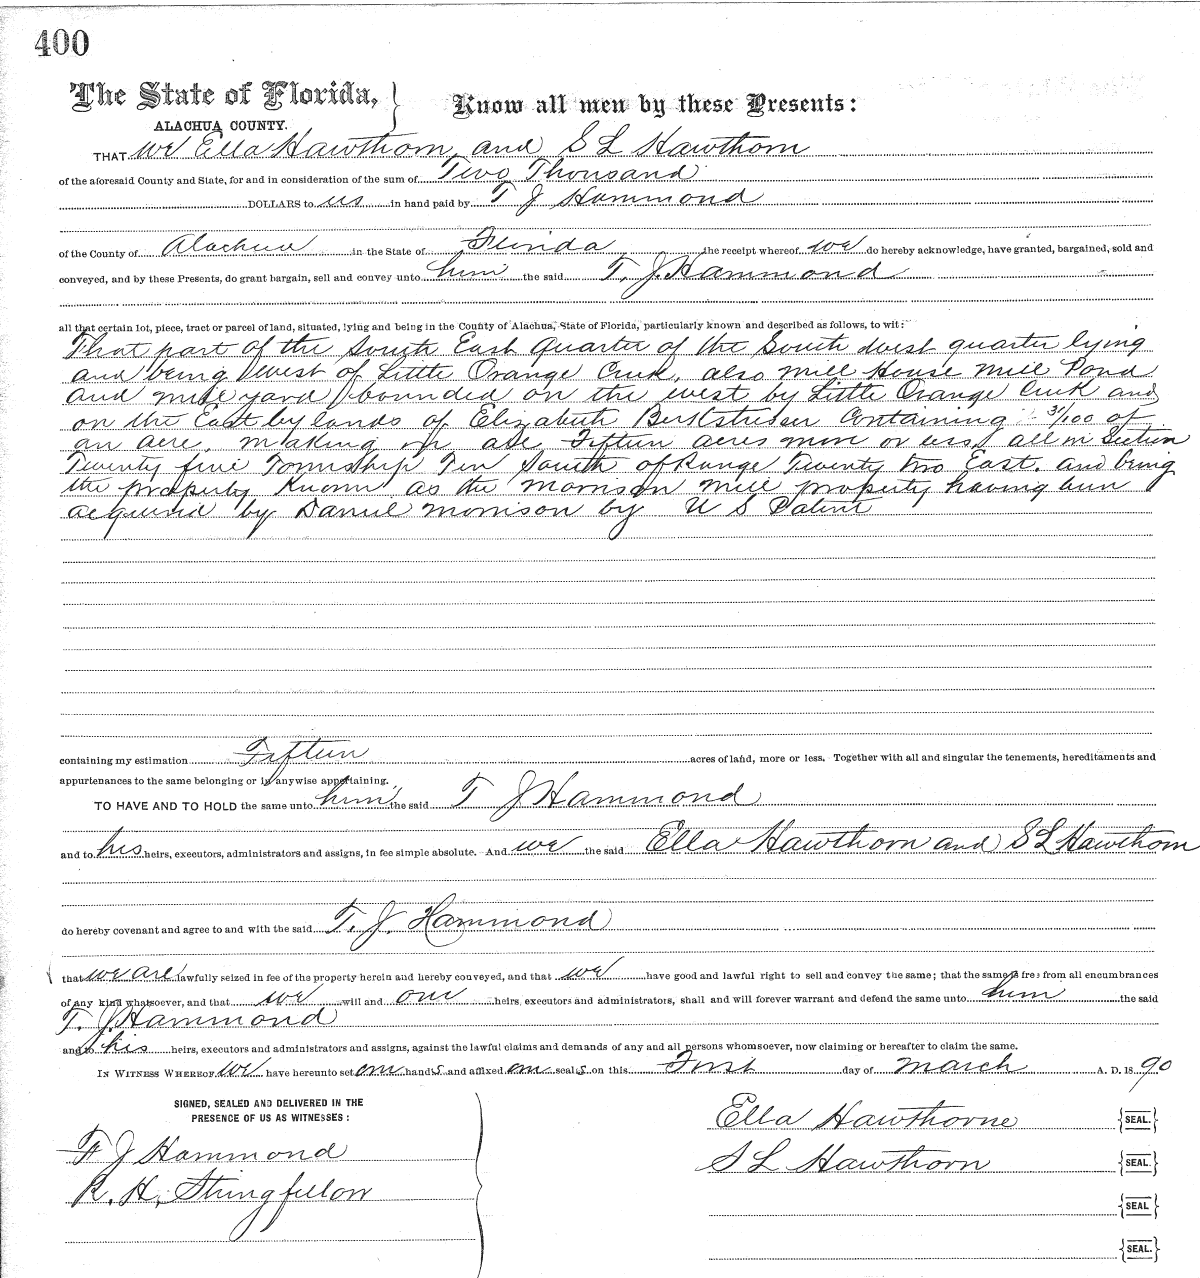 400
The State of Florida, } Know all men by these Presents:
ALACHUA COUNTY.
THAT we Ella Hawthorn, and S L Hawthorn
of the aforesaid County and State, for and in consideration of the sum of Two Thousand
DOLLARS to us in hand paid by T J Hammond
of the County of Alachua in the State of Florida the receipt whereof we do hereby acknowledge, have granted, bargained, sold and
conveyed, and by these Presents, do grant bargain, sell and convey unto him the said T. J. Hammond
all that certain lot, piece, tract or parcel of land, situated, lying and being in the County of Alachua, State of Florida, particularly known and described as follows, to wit:
That part of the South East quarter of the South west quarter lying
and being west of Little Orange Creek, also Mill House Mill Pond
and mill yard bounded on the west by Little Orange Creek and
on the East by lands of Elizabeth Berkstresser Containing 31/100 of
an acre, making in all Fifteen acres more or less, all in Section
Twenty five Township Ten South of Range Twenty two East. and being
the property Known as the Morrison mill property having been
acquired by Daniel Morrison by U S Patent
containing my estimation Fifteen acres of land, more or less. Together with all and singular the tenements, hereditaments and
appurtenances to the same belonging or in anywise appertaining.
TO HAVE AND TO HOLD the same unto him the said T J Hammond
and to his heirs, executors, administrators and assigns, in fee simple absolute. And we the said Ella Hawthorn and S L Hawthorn
do hereby covenant and agree to and with the said T. J. Hammond
that we are lawfully seized in fee of the property herein and hereby conveyed, and that we have good and lawful right to sell and convey the same; that the same is free from all encumbrances
of any kind whatsoever, and that we will and our heirs, executors and administrators, shall and will forever warrant and defend the same unto him the said
T. J. Hammond
and to his heirs, executors and administrators and assigns, against the lawful claims and demands of any and all persons whomsoever, now claiming or hereafter to claim the same.
IN WITNESS WHEREOF we have hereunto set our hands and affixed our seals on this First day of March A. D. 1890
SIGNED, SEALED AND DELIVERED IN THE
PRESENCE OF US AS WITNESSES:
Ella Hawthorne {SEAL.}
F J Hammond
S L Hawthorn {SEAL.}
R. H. Stringfellow
{SEAL}
{SEAL.}